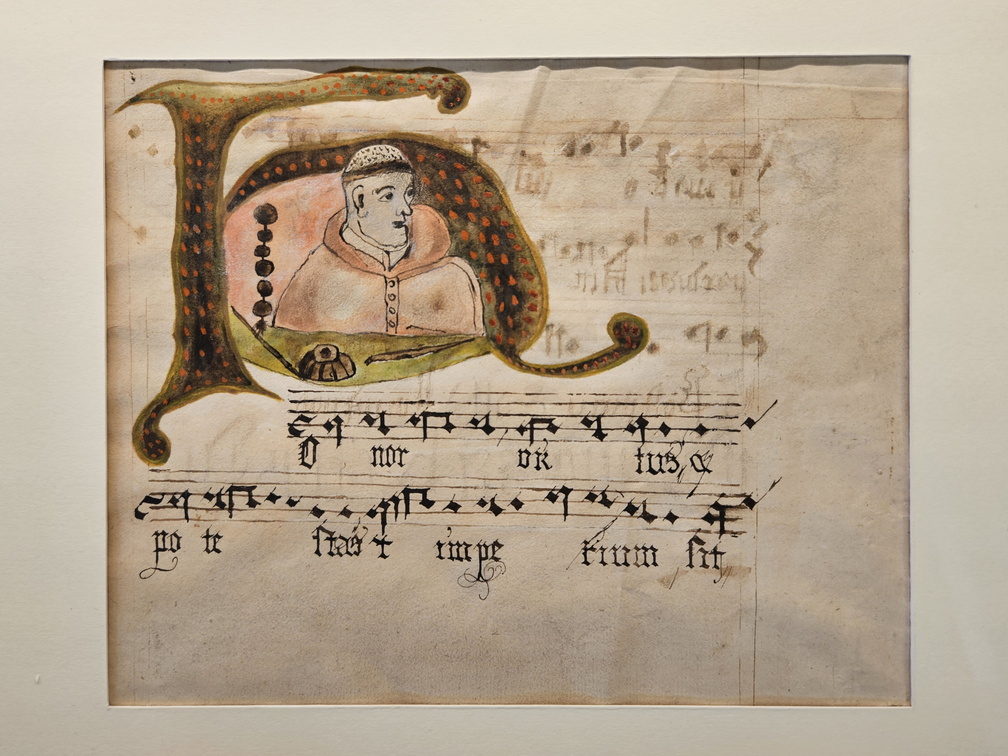 HO nor vir tus, &
po te stas ⁊ impe rium sit,